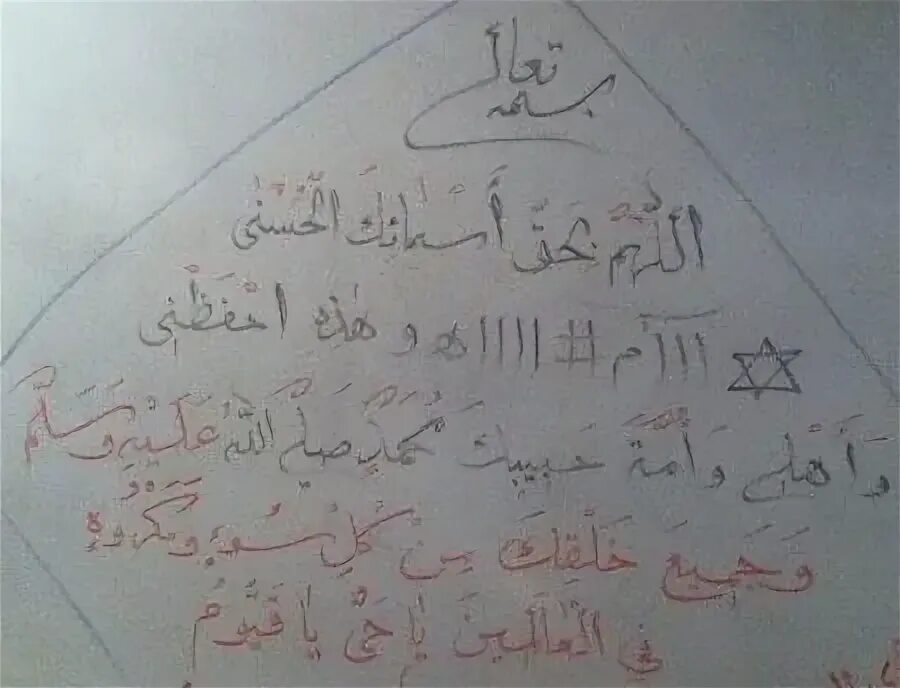 بسمه تعالى
اللّهم بحقّ أسمائك الحُسنى
✡ ااآم # اااا هـ و هذه احفظنى
وَأهلي وَأمة حبيبك محمد صلى اللّه عليه وسلم
وَجميعَ خَلقك من كلِّ سوء ومكروه
في العالمين يا حيّ يا قيّوم